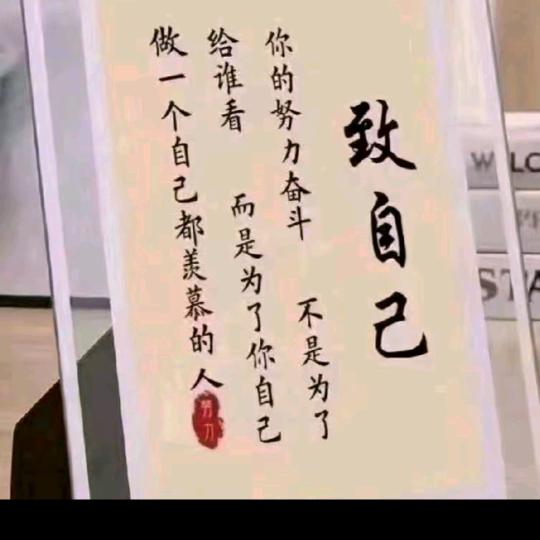 致自己
你的努力奋斗 不是为了
给谁看 而是为了你自己
做一个自己都羡慕的人
努力
WELCO
STA